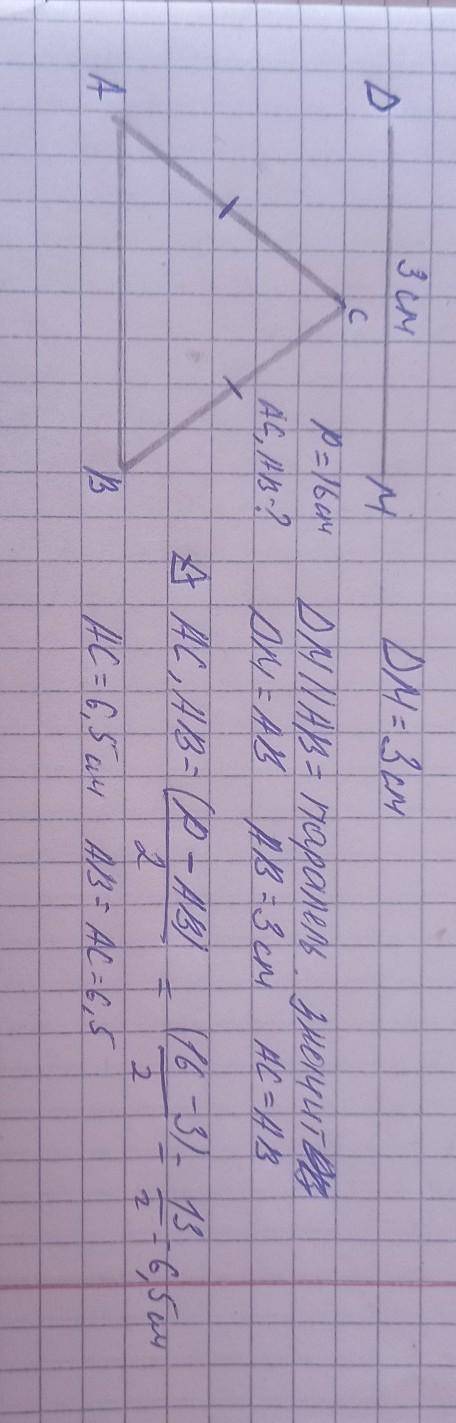 D 3 см М
DM = 3 см
C
P = 16 см
AC, AB - ?
A
B
DM || AB = паралель. значит
DM = AB AB = 3 см AC = AB
AC, AB = (P - AB) / 2 = (16 - 3) / 2 = 13 / 2 = 6,5 см
AC = 6,5 см AB = AC = 6,5